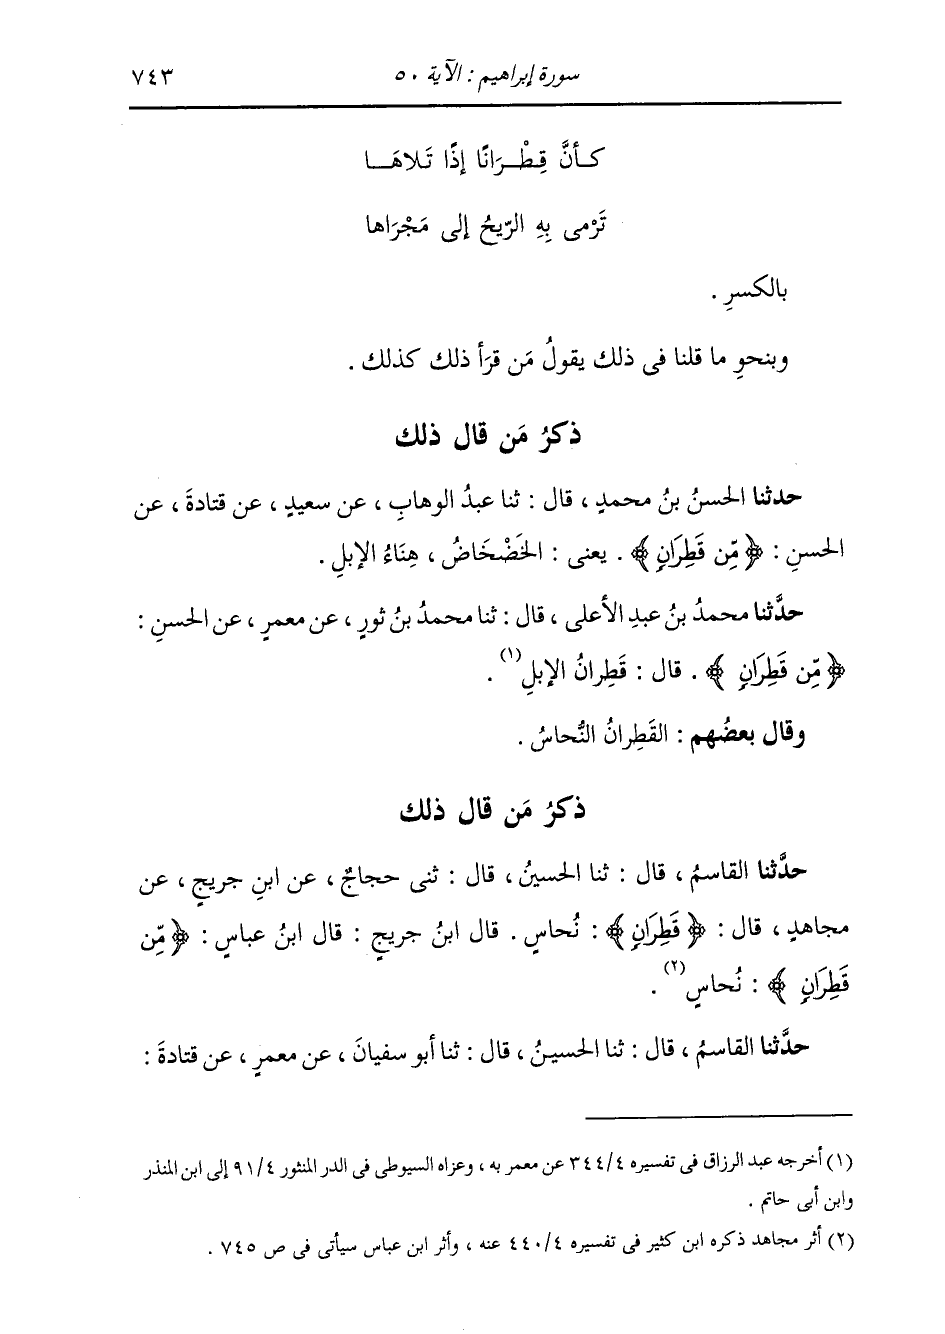 سورة إبراهيم : الآية ٥٠ ٧٤٣
كـأنَّ قِطْـرَانًا إذًا تَـلاهَـا
تَرْمى بِهِ الرّيحُ إلى مَجْرَاها
بالكسرِ .
وبنحوِ ما قلنا فى ذلك يقولُ مَن قرَأ ذلك كذلك .
ذكرُ مَن قال ذلك
حدثنا الحسنُ بنُ محمدٍ ، قال : ثنا عبدُ الوهابِ ، عن سعيدٍ ، عن قتادةَ ، عن
الحسنِ : ﴿ مِّن قَطِرَانٍ ﴾ . يعنى : الخَضْخَاضُ ، هِنَاءُ الإبلِ .
حدَّثنا محمدُ بنُ عبدِ الأعلى ، قال : ثنا محمدُ بنُ ثورٍ ، عن معمرٍ ، عن الحسنِ :
﴿ مِّن قَطِرَانٍ ﴾ . قال : قَطِرانُ الإبلِ(١) .
وقال بعضُهم : القَطِرانُ النُّحاسُ .
ذكرُ مَن قال ذلك
حدَّثنا القاسمُ ، قال : ثنا الحسينُ ، قال : ثنى حجاجٌ ، عن ابنِ جريجٍ ، عن
مجاهدٍ ، قال : ﴿ قَطِرَانٍ ﴾ : نُحاسٍ . قال ابنُ جريجٍ : قال ابنُ عباسٍ : ﴿ مِّن
قَطِرَانٍ ﴾ : نُحاسٍ(٢) .
حدَّثنا القاسمُ ، قال : ثنا الحسينُ ، قال : ثنا أبو سفيانَ ، عن معمرٍ ، عن قتادةَ :
(١) أخرجه عبد الرزاق فى تفسيره ٣٤٤/٤ عن معمر به ، وعزاه السيوطى فى الدر المنثور ٩١/٤ إلى ابن المنذر
وابن أبى حاتم .
(٢) أثر مجاهد ذكره ابن كثير فى تفسيره ٤٤٠/٤ عنه ، وأثر ابن عباس سيأتى فى ص ٧٤٥ .